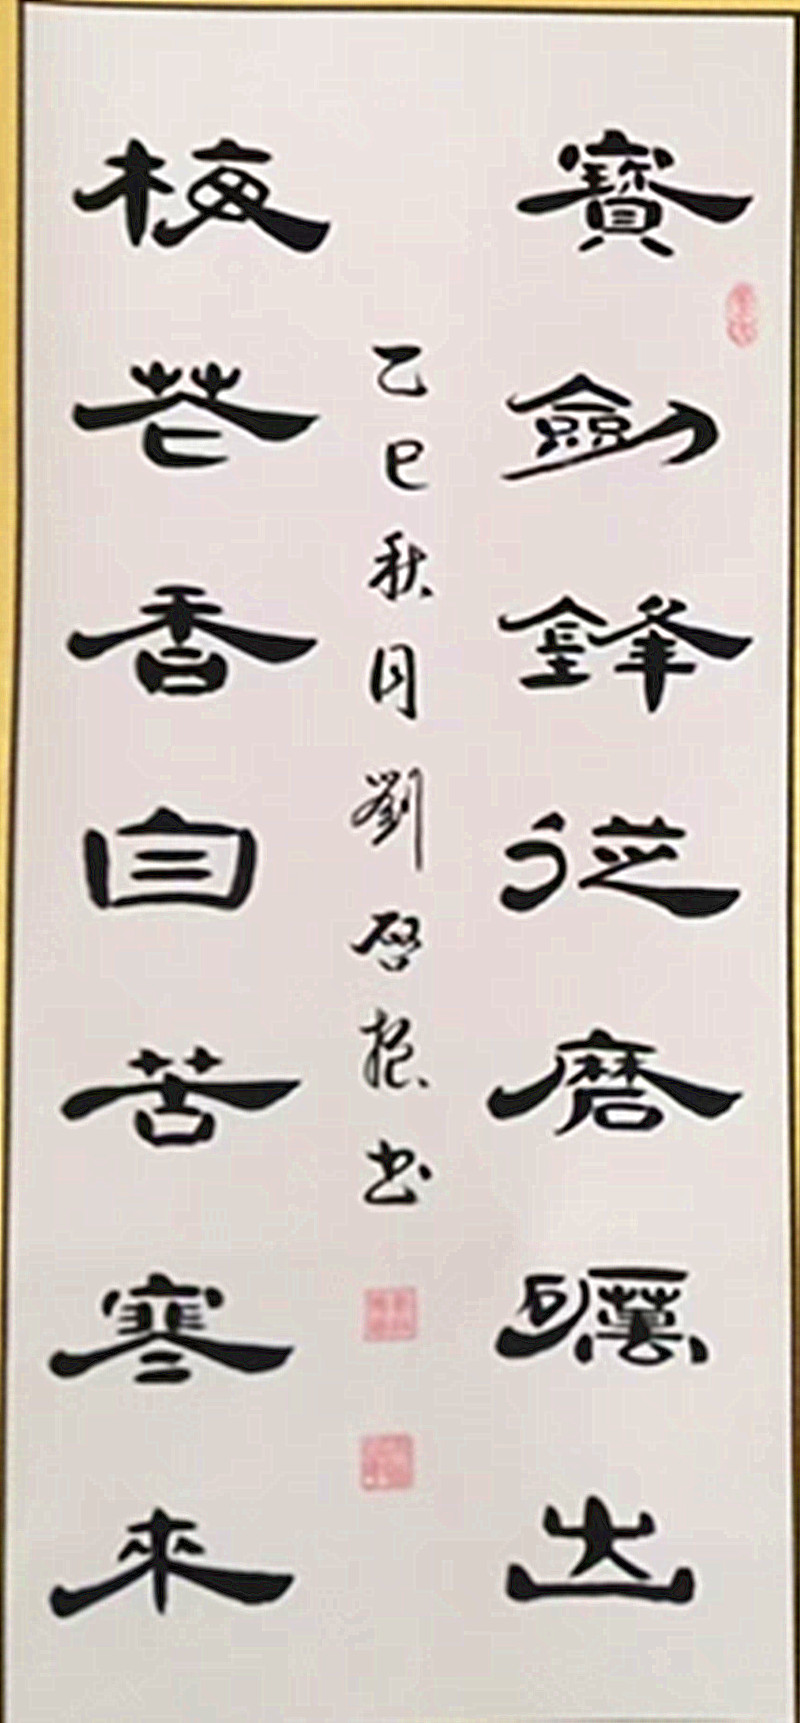 寶劍鋒從磨礪出
乙巳秋月劉啓振書
梅花香自苦寒來